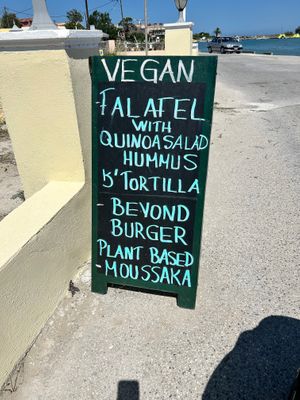 VEGAN
- FALAFEL
WITH
QUINOA SALAD
HUMMUS
K' TORTILLA
- BEYOND
BURGER
PLANT BASED
- MOUSSAKA